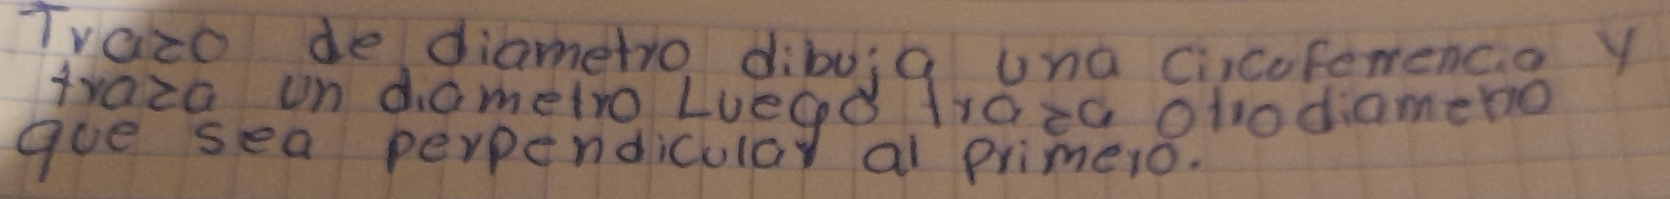 Trazo de diametro dibuja una circuferencia y
traza un diametro Luego traza otro diametro
que sea perpendicular al primero.